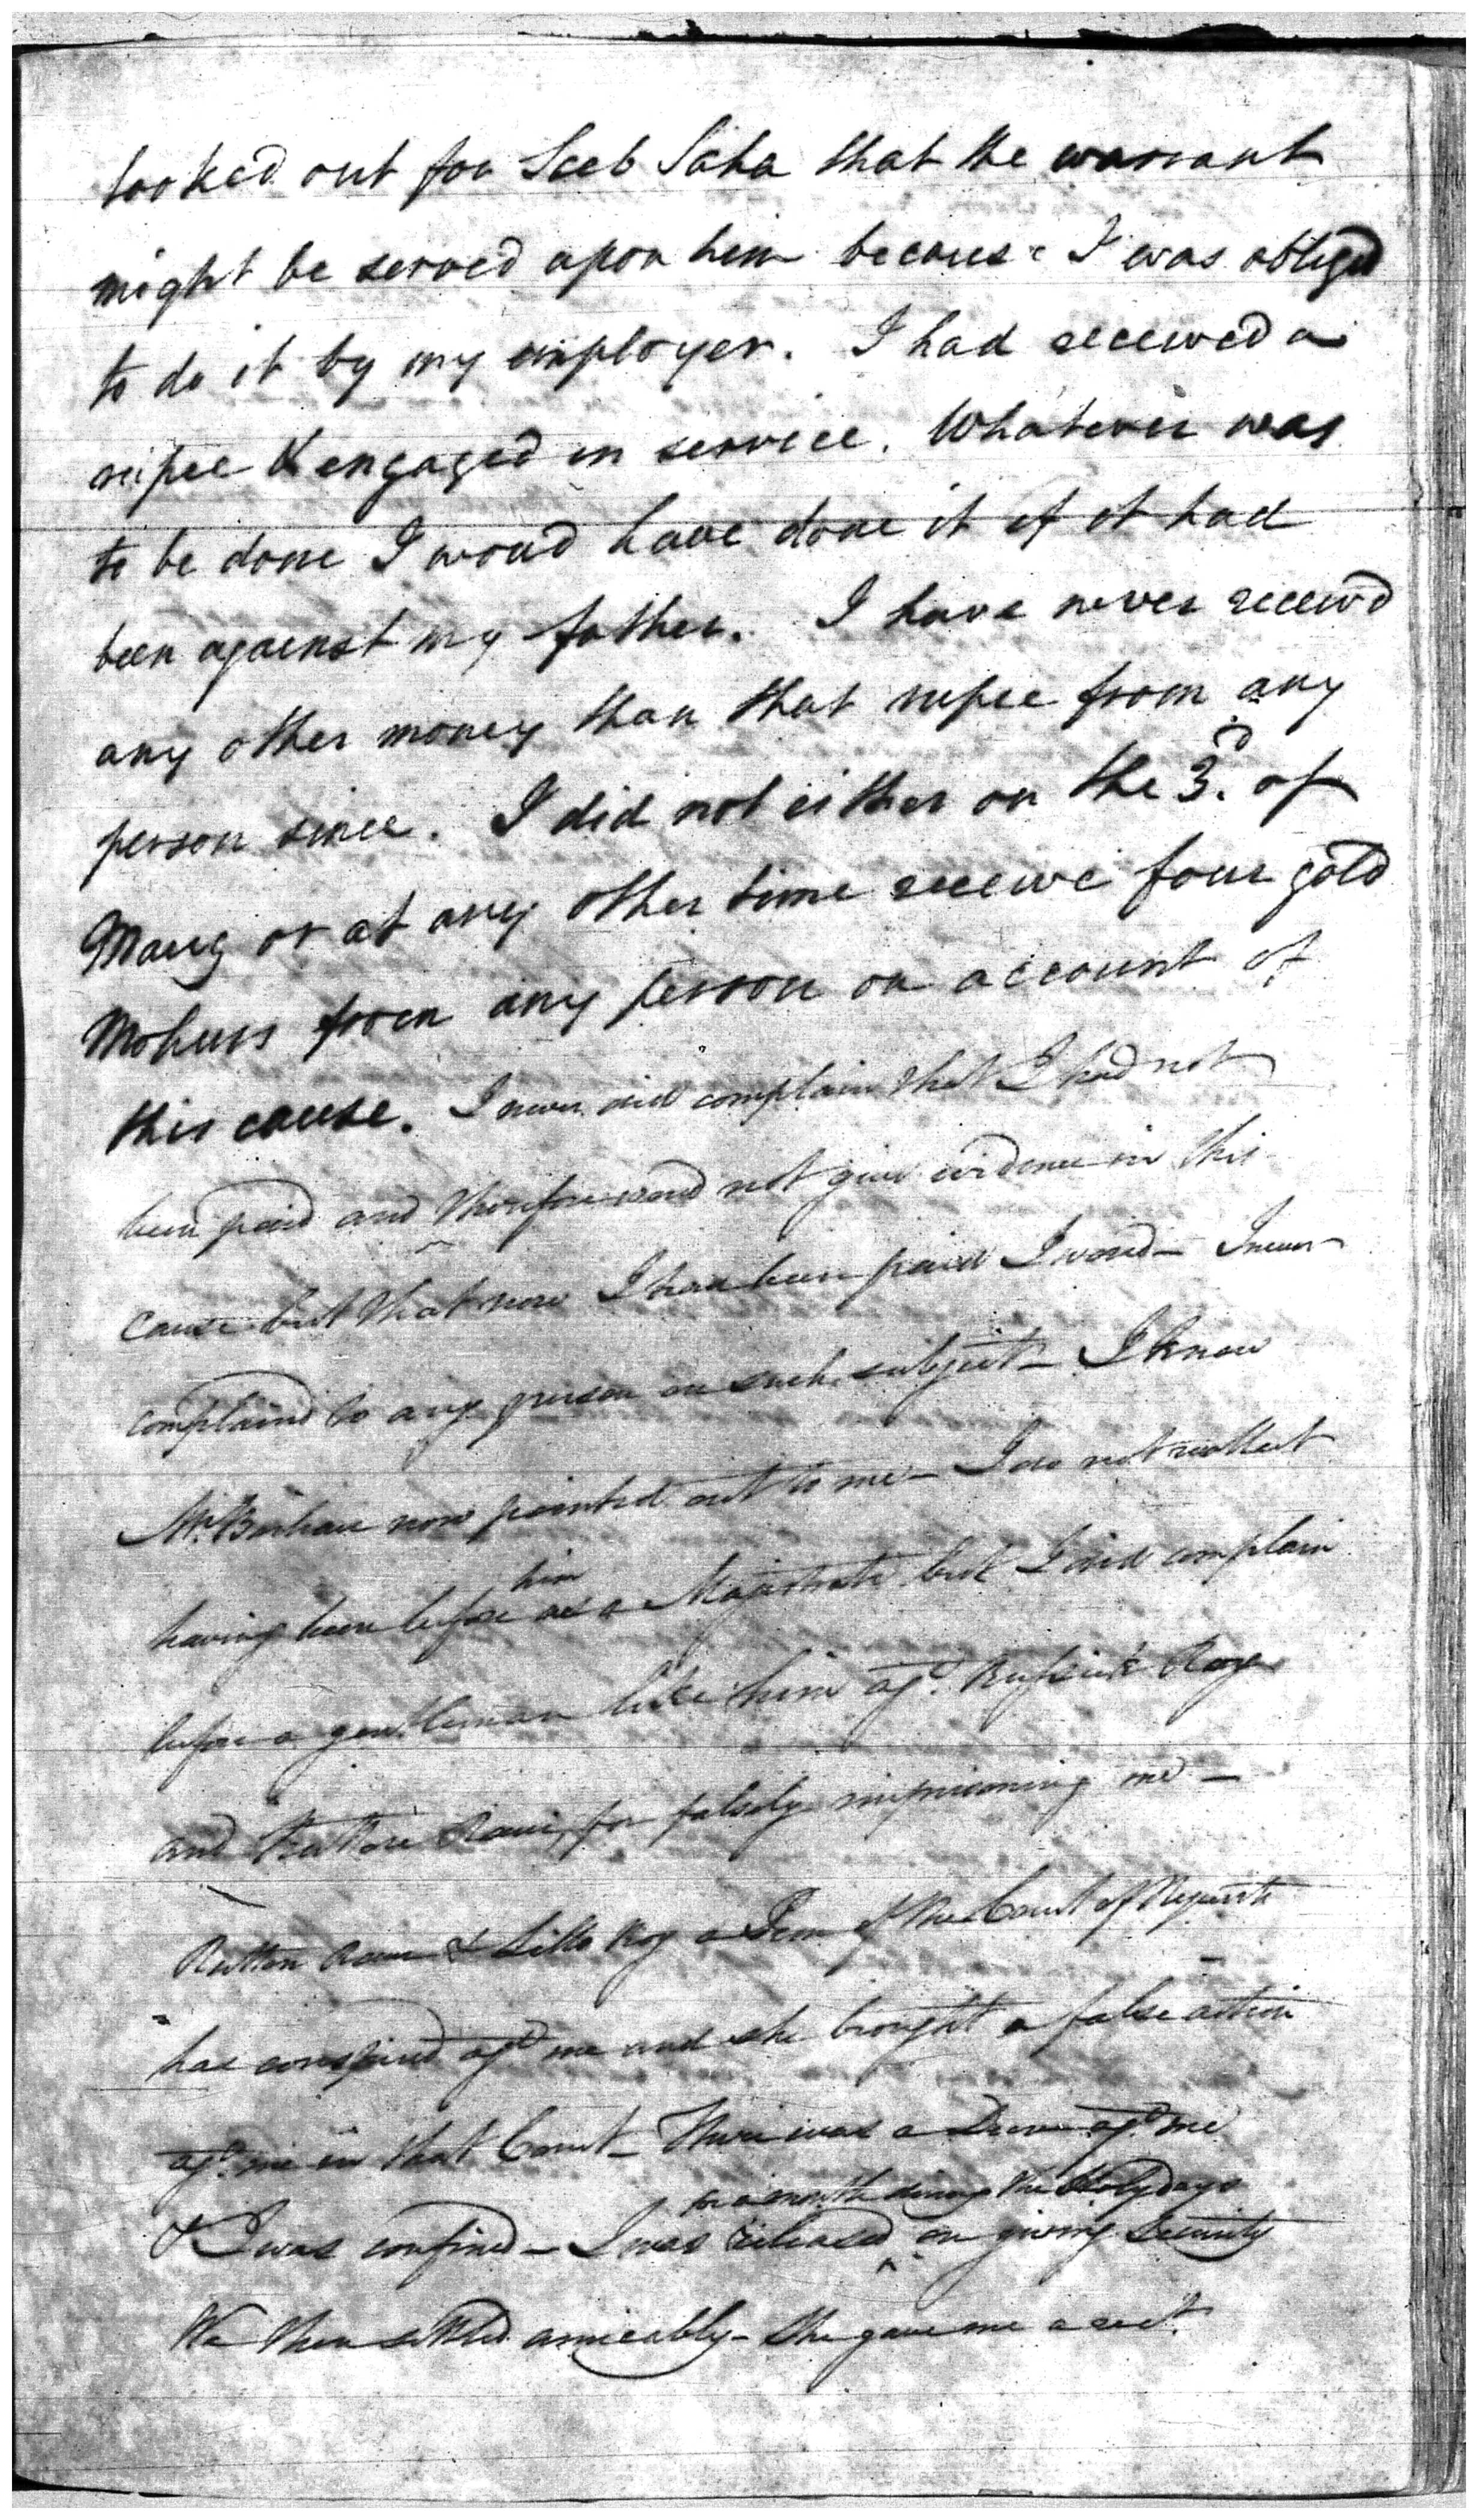 looked out for Seeb Saha that the warrant
might be served upon him because I was obliged
to do it by my employer. I had received a
rupee & engaged in service. Whatever was
to be done I woud have done it if it had
been against my father. I have never receivd
any other money than that rupee from any
person since. I did not either on the 3.d of
Maug or at any other time receive four gold
Mohurs from any person on account of
this cause. I never did complain that I had not
been paid and therefore woud not give evidence in this
cause but that now I had been paid I woud – I never
complaind to any person on such subject – I know
Mr. now pointed out to me – I do not recollect
having been before him as a Magistrate but I did complain
before a gentleman like him agt. Roy
and for falsely imprisoning me –
Rutton & Roy a of the Court of Requests
has conspired agt me and she brought a false action
agt. me in that Court – There was a agt. me
& I was confined – I was released for a month during the Holydays on giving Security
We then settled amicably – She gave me a